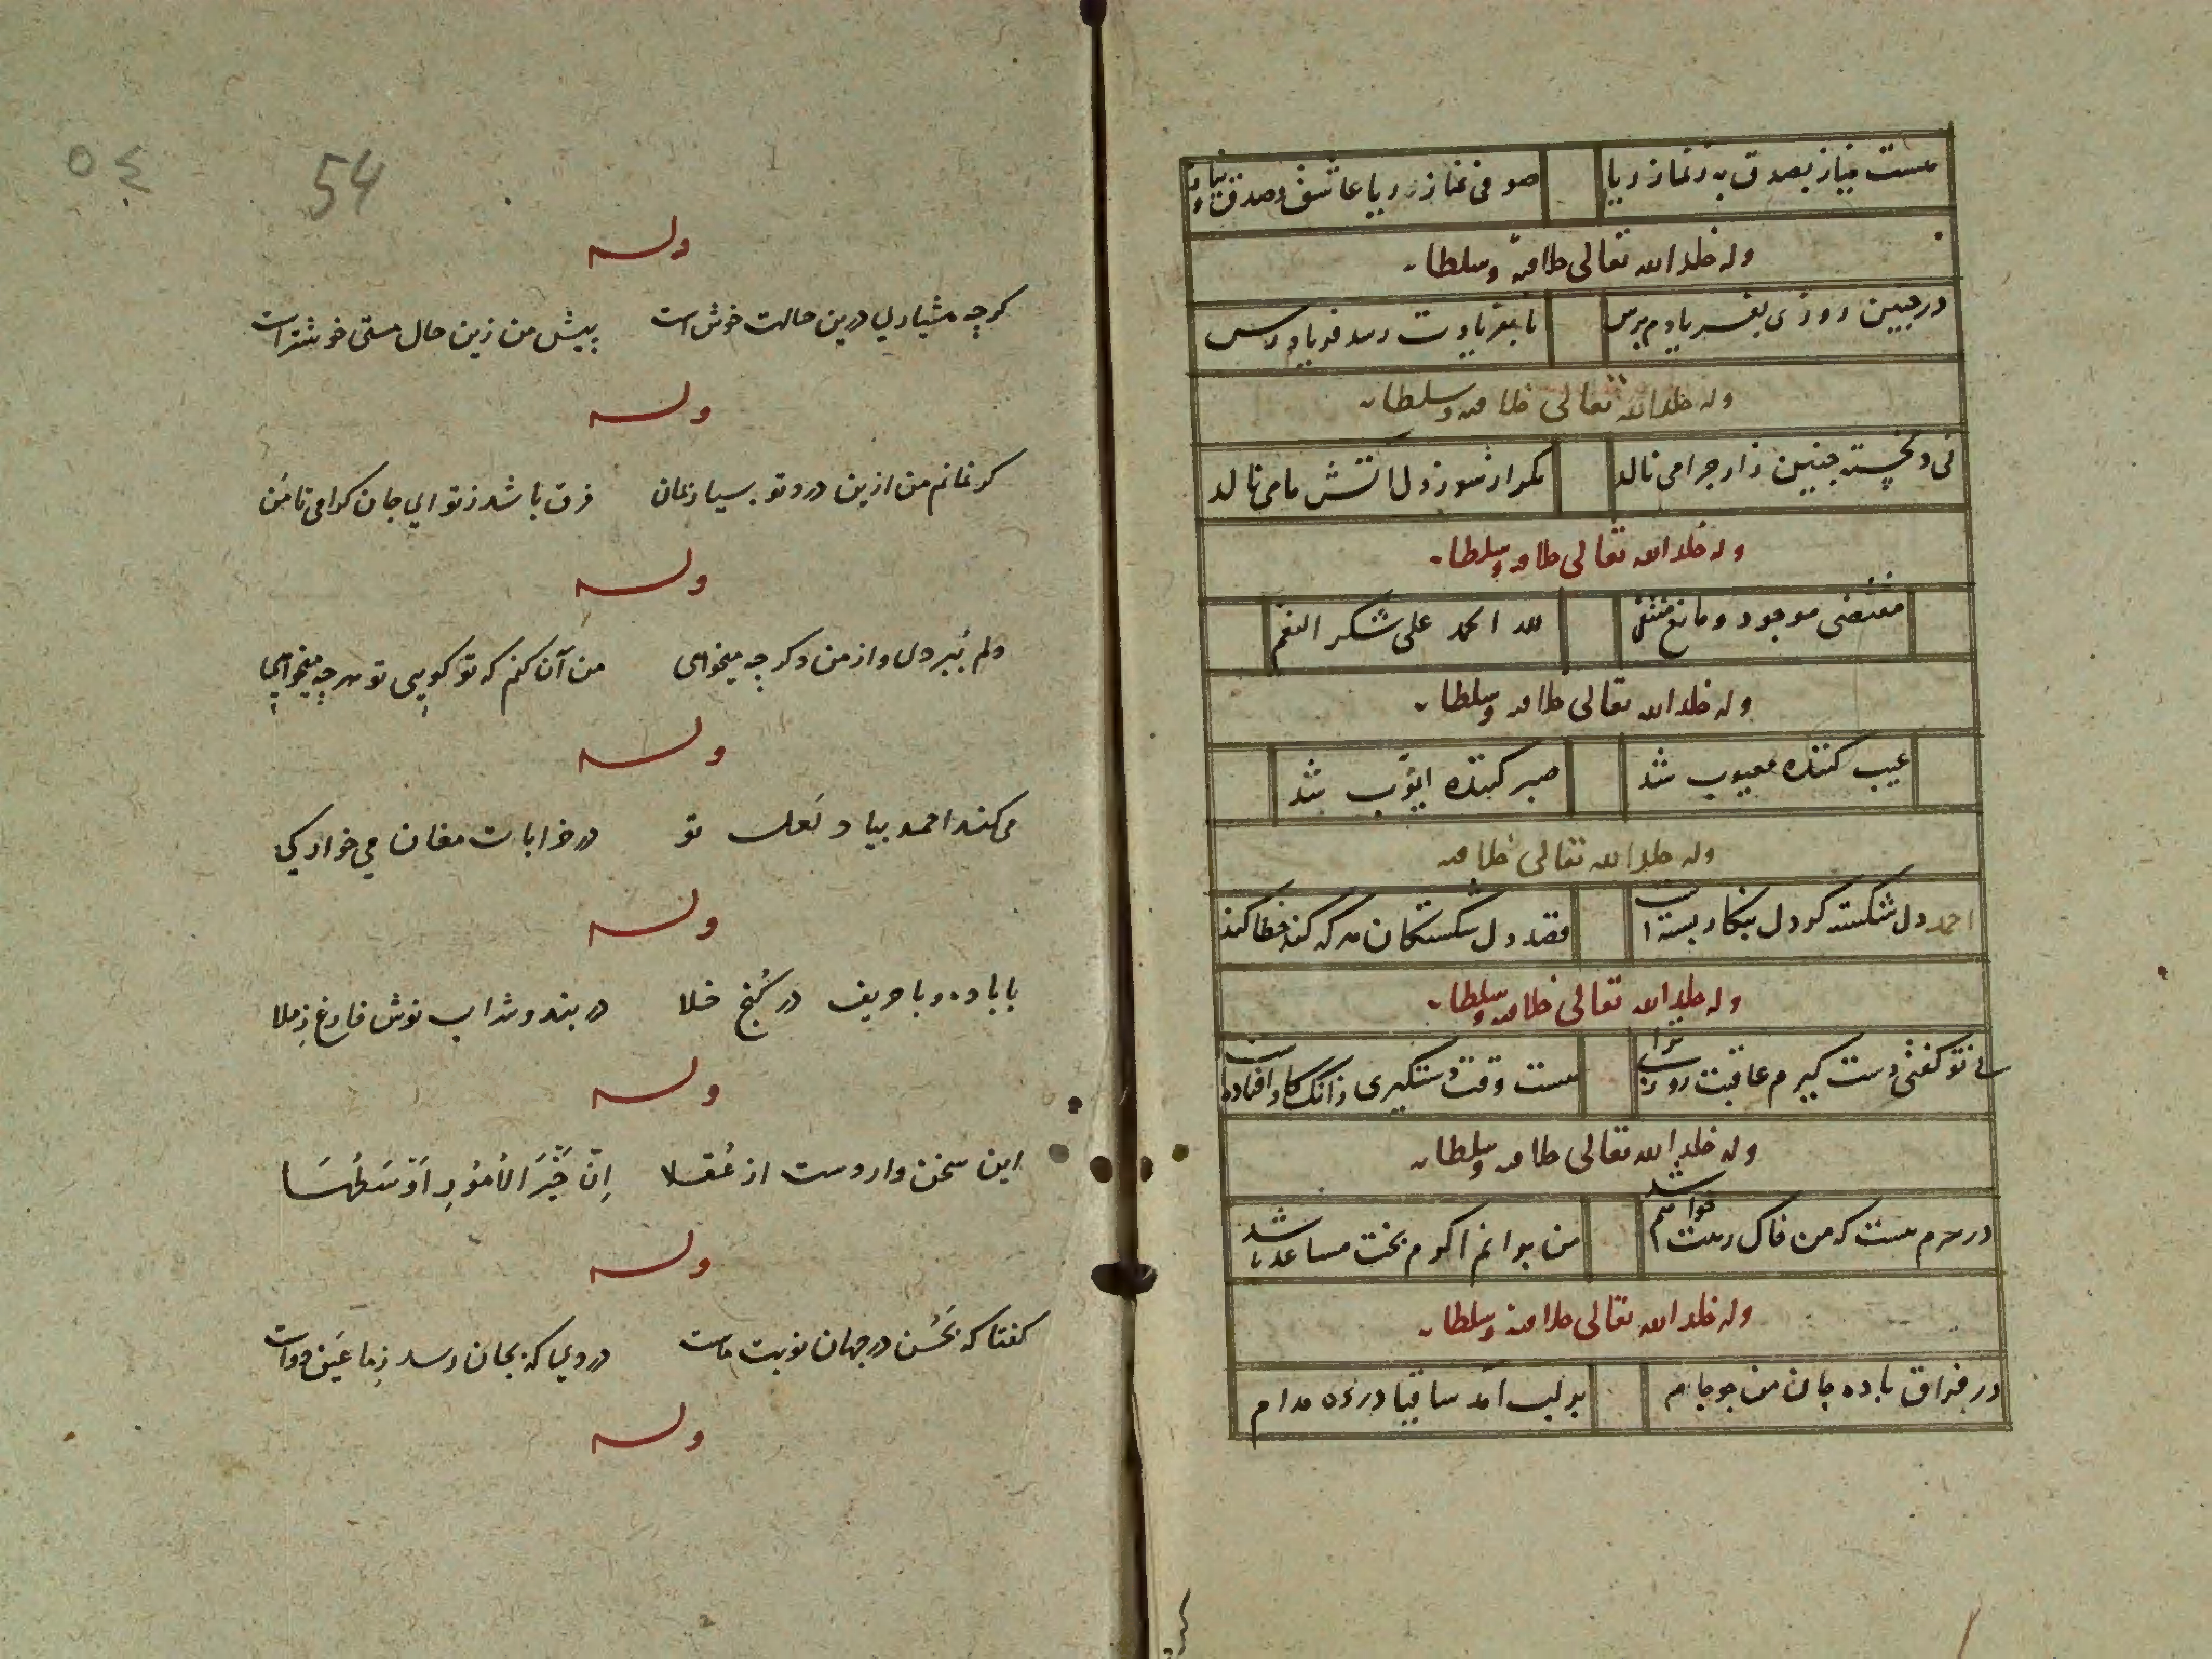 هست نیاز بصدق به ز نماز ریا صوفی نماز ریا عاشق و صدق و نیاز
وله خلد الله تعالی خلافته و سلطانه
در چنین روزی بفریادم برس تا بفریادت رسد فریادرس
وله خلد الله تعالی خلافته و سلطانه
نی دلخسته چنین زار چرا می نالد مکر از سوز دل آتش ما می نالد
وله خلد الله تعالی خلافته و سلطانه
مقتضی موجود و مانع منتفی لله الحمد علی شکر النعم
وله خلد الله تعالی خلافته و سلطانه
عیب کننده معیوب شد صبر کننده ایّوب شد
وله خلد الله تعالی خلافته
احمد دل شکسته کر دل بنکار بسته است قصد دل شکستکان هرکه کند خطا کند
وله خلد الله تعالی خلافته و سلطانه
نی تو کفتی دست کیرم عاقبت روزی ترا هست وقت دستکیری زانک کار افتاده است
وله خلد الله تعالی خلافته و سلطانه
در سرم هست که من خاک رهت خواهم شد من برانم اکرم بخت مساعد باشد
وله خلد الله تعالی خلافته و سلطانه
در فراق باده جان من چو جام بر لب آمد ساقیا در ده مدام
٥٤
54
وله
کرچه هشیاری درین حالت خوش است پیش من زین حال مستی خوشتر است
وله
کر نمانم من ازین درد تو بسیار نمان فرق باشد ز تو ای جان کرامی تا من
وله
دلم ببر دل و از من دکر چه میخواهی من آن کنم که تو کویی تو هرچه میخواهی
وله
می کند احمد بیاد لعل تو در خرابات مغان می خوارکی
وله
با باده و با حریف در کُنج خلا در بند و شراب نوش فارغ ز ملا
وله
این سخن واردست از عُقلا اِنّ خَیْرَ الاُمُورِ اَوْسَطُهَا
وله
کفتا که بحُسن در جهان نوبت ماست دردی که بجان رسد ز ما عَین دواست
وله